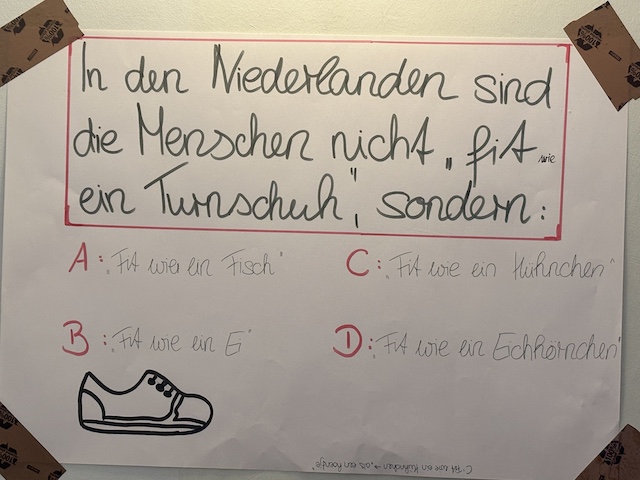 In den Niederlanden sind
die Menschen nicht „fit wie
ein Turnschuh", sondern:
A: „Fit wie ein Fisch"
C: „Fit wie ein Hühnchen"
B: „Fit wie ein Ei"
D: „Fit wie ein Eichhörnchen"
C: Fit wie ein Hühnchen → „als een hoentje"